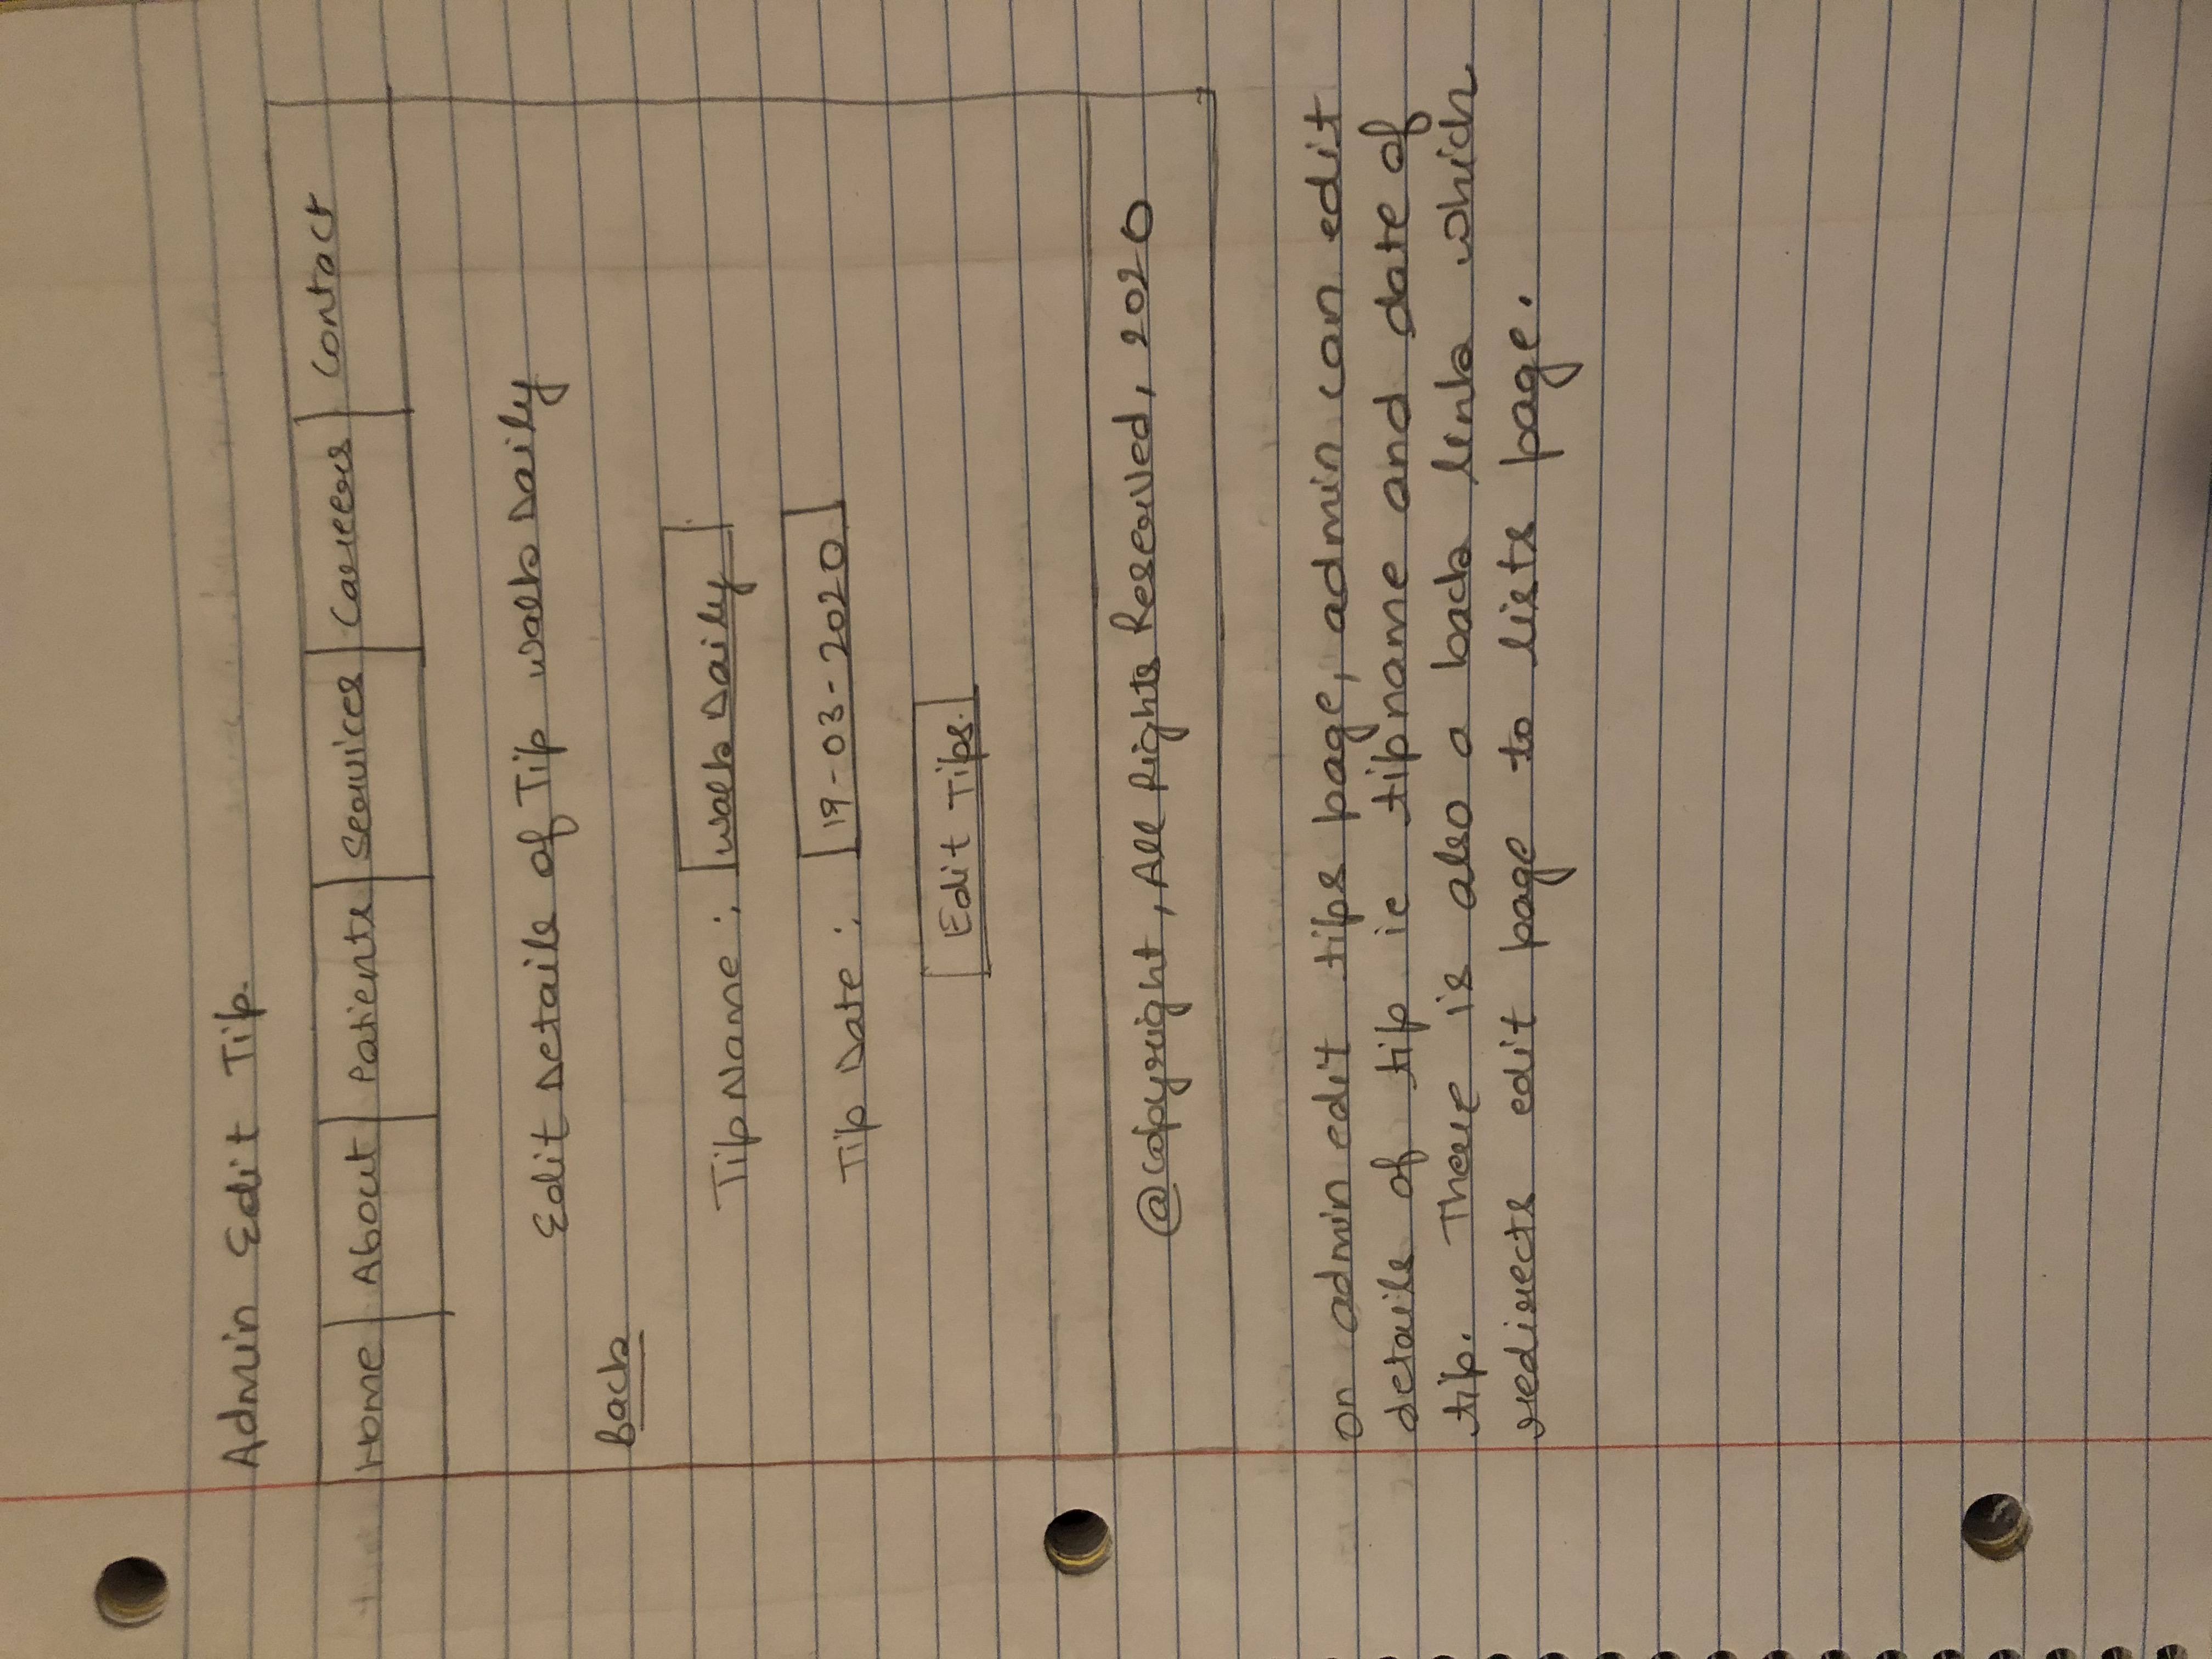 Admin Edit Tip.
Home About Patients Services Careers Contact
Edit Details of Tip Walk Daily
Back
Tip Name : Walk Daily
Tip Date : 19-03-2020
Edit Tips.
@copyright, All Rights Reserved, 2020
on admin edit tips page, admin can edit
details of tip ie tipname and date of
tip. There is also a back link which
redirects edit page to lists page.